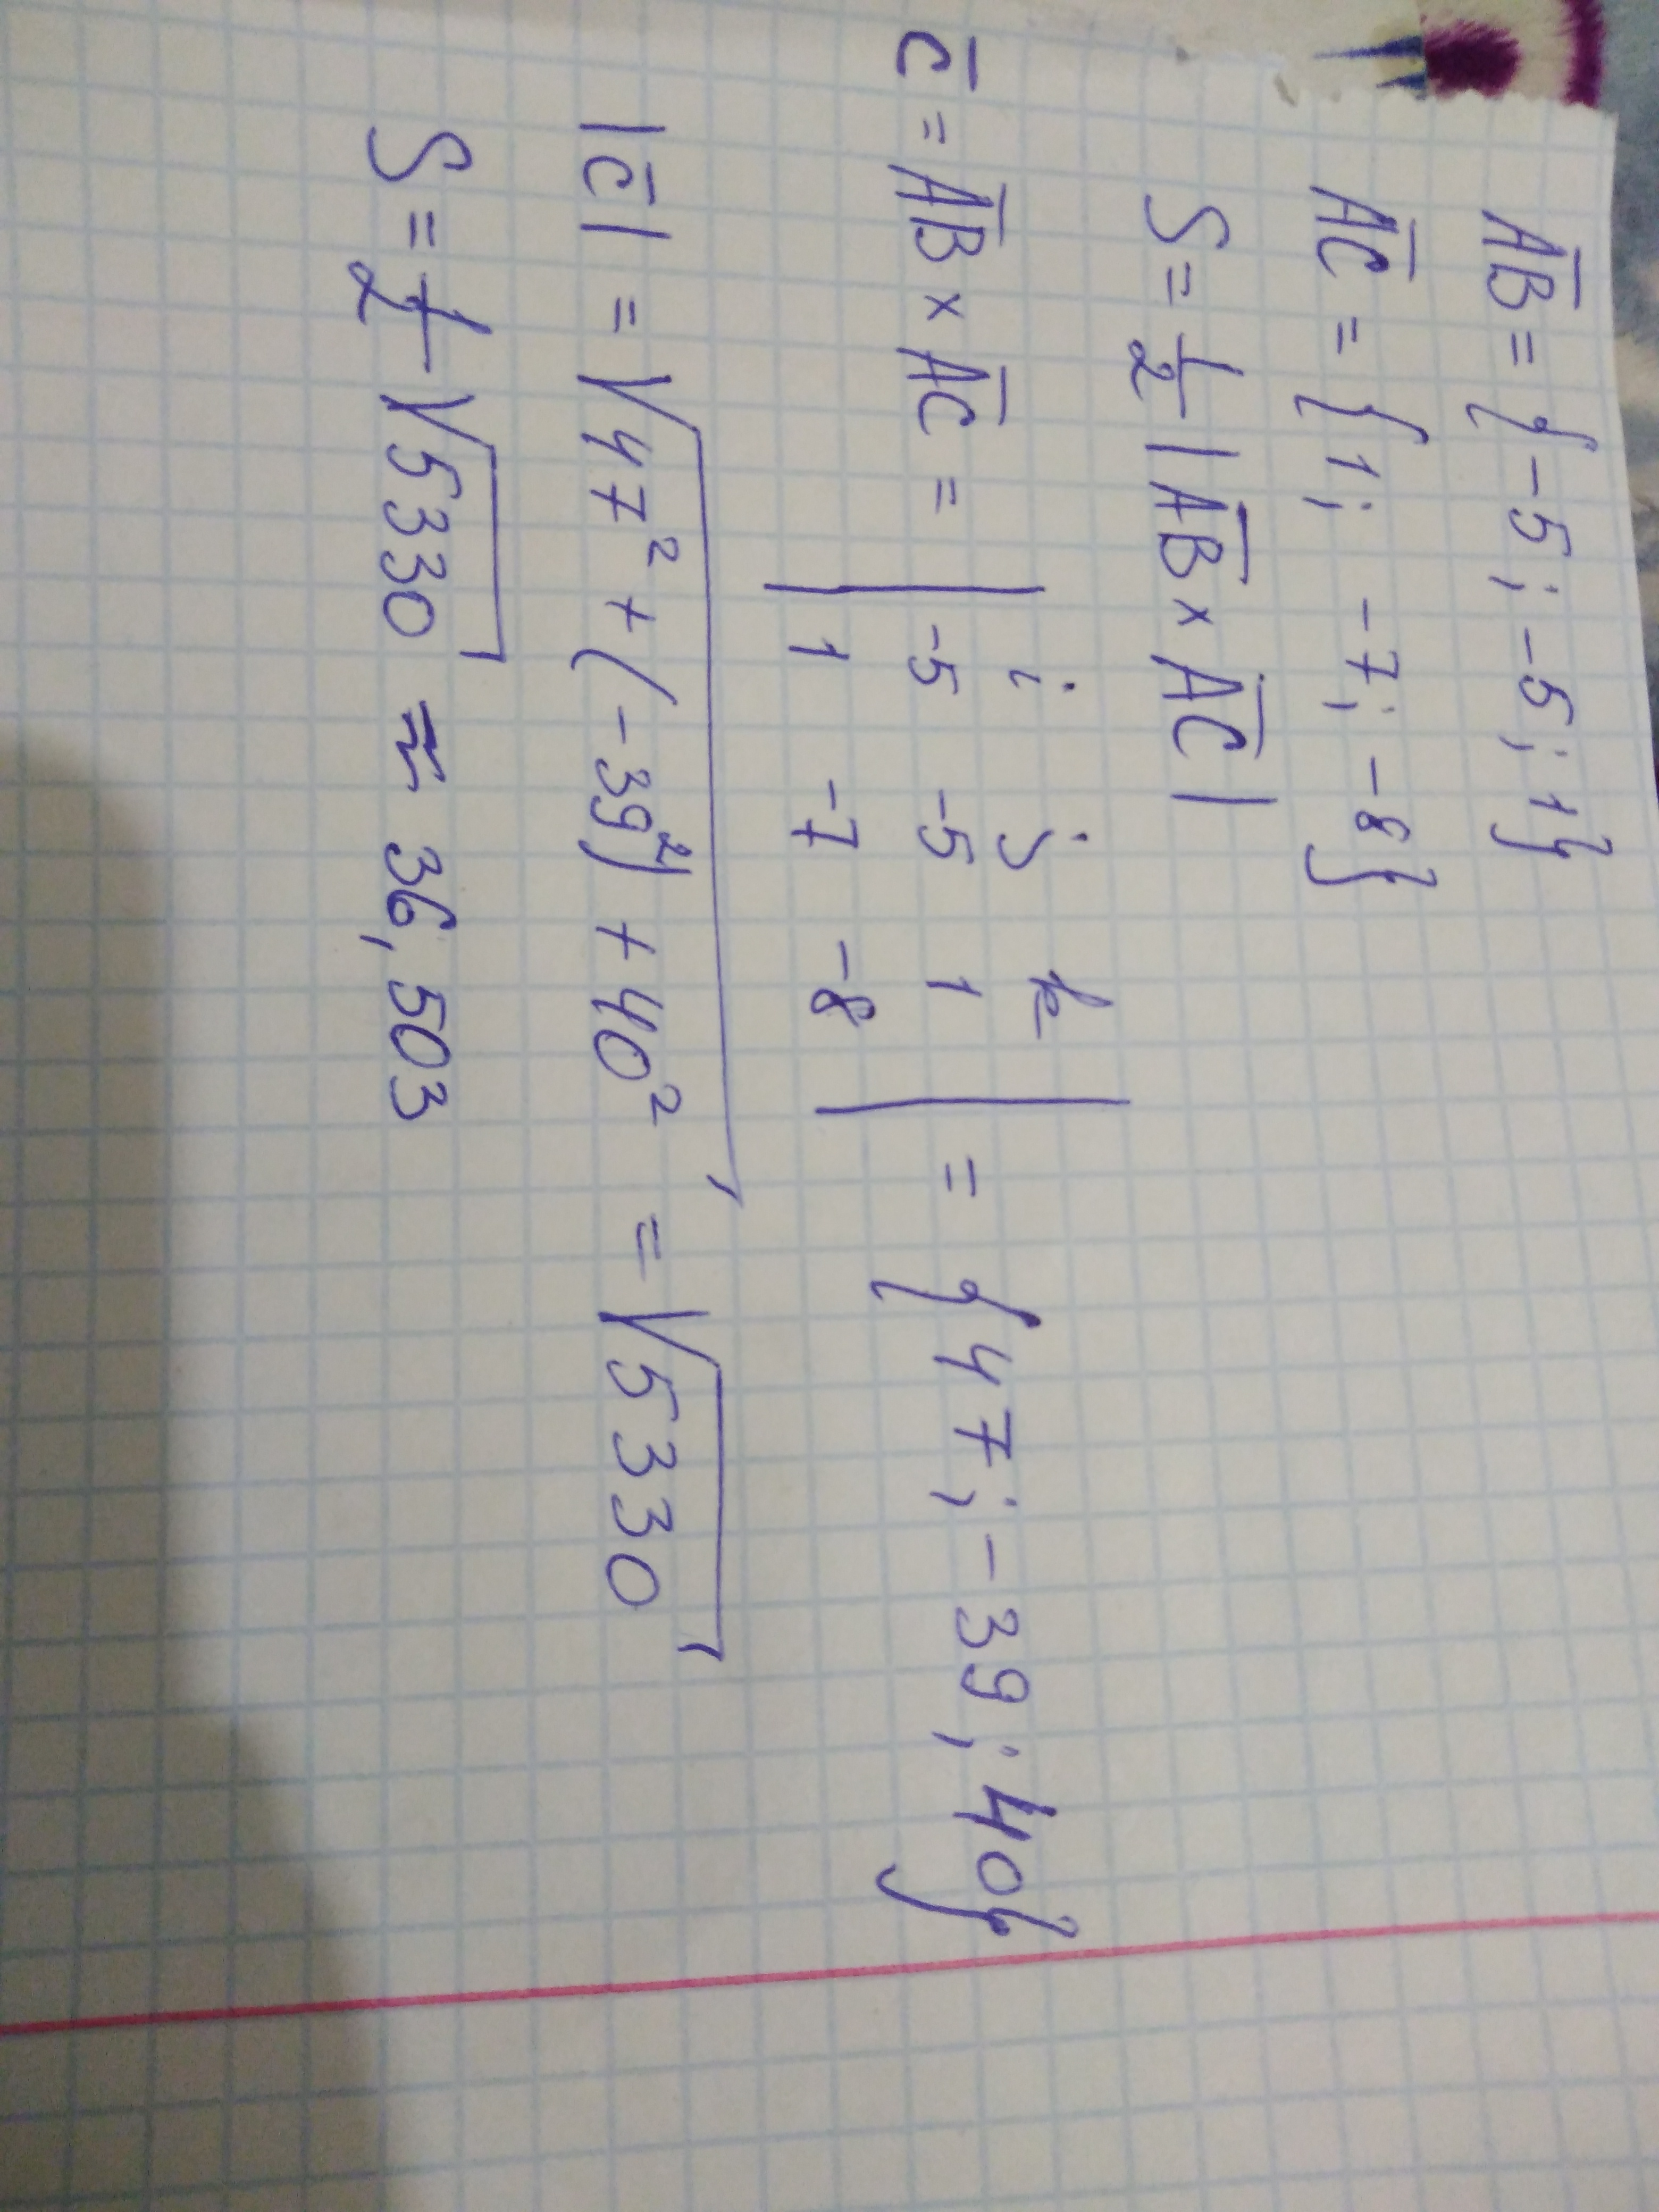 A̅B̅ = {-5; -5; 1}
A̅C̅ = {1; -7; -8}
S = 1/2 |A̅B̅ × A̅C̅|
c̅ = A̅B̅ × A̅C̅ = | i j k
-5 -5 1
1 -7 -8 | = {47; -39; 40}
|c̅| = √(47² + (-39²) + 40²) = √5330
S = 1/2 √5330 ≈ 36,503